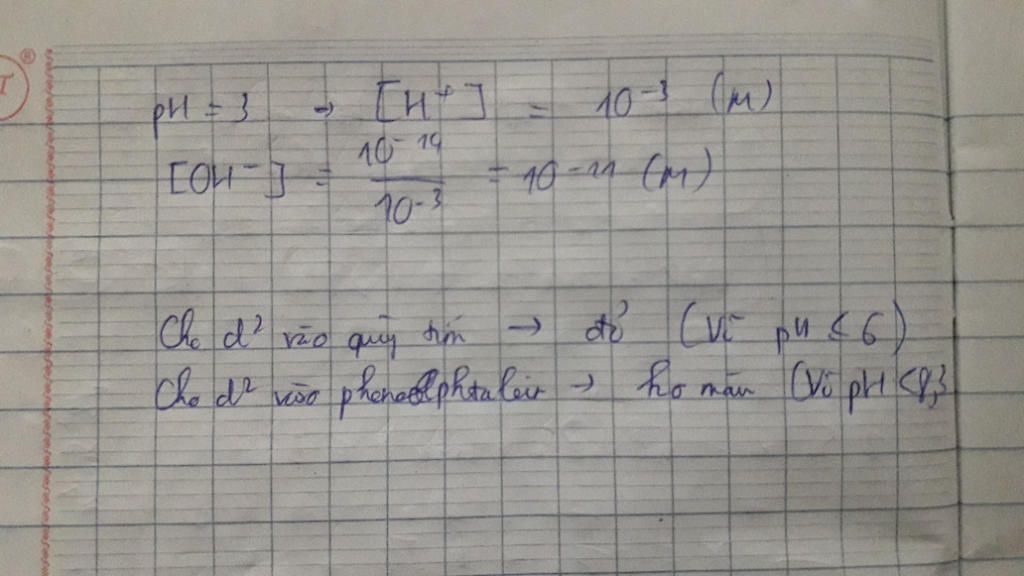 pH = 3 → [H⁺] = 10⁻³ (M)
[OH⁻] = 10⁻¹⁴ / 10⁻³ = 10⁻¹¹ (M)
Cho d² vào quỳ tím → đỏ (Vì pH ≤ 6)
Cho d² vào phenolphtalein → ko màu (Vì pH < 8,3